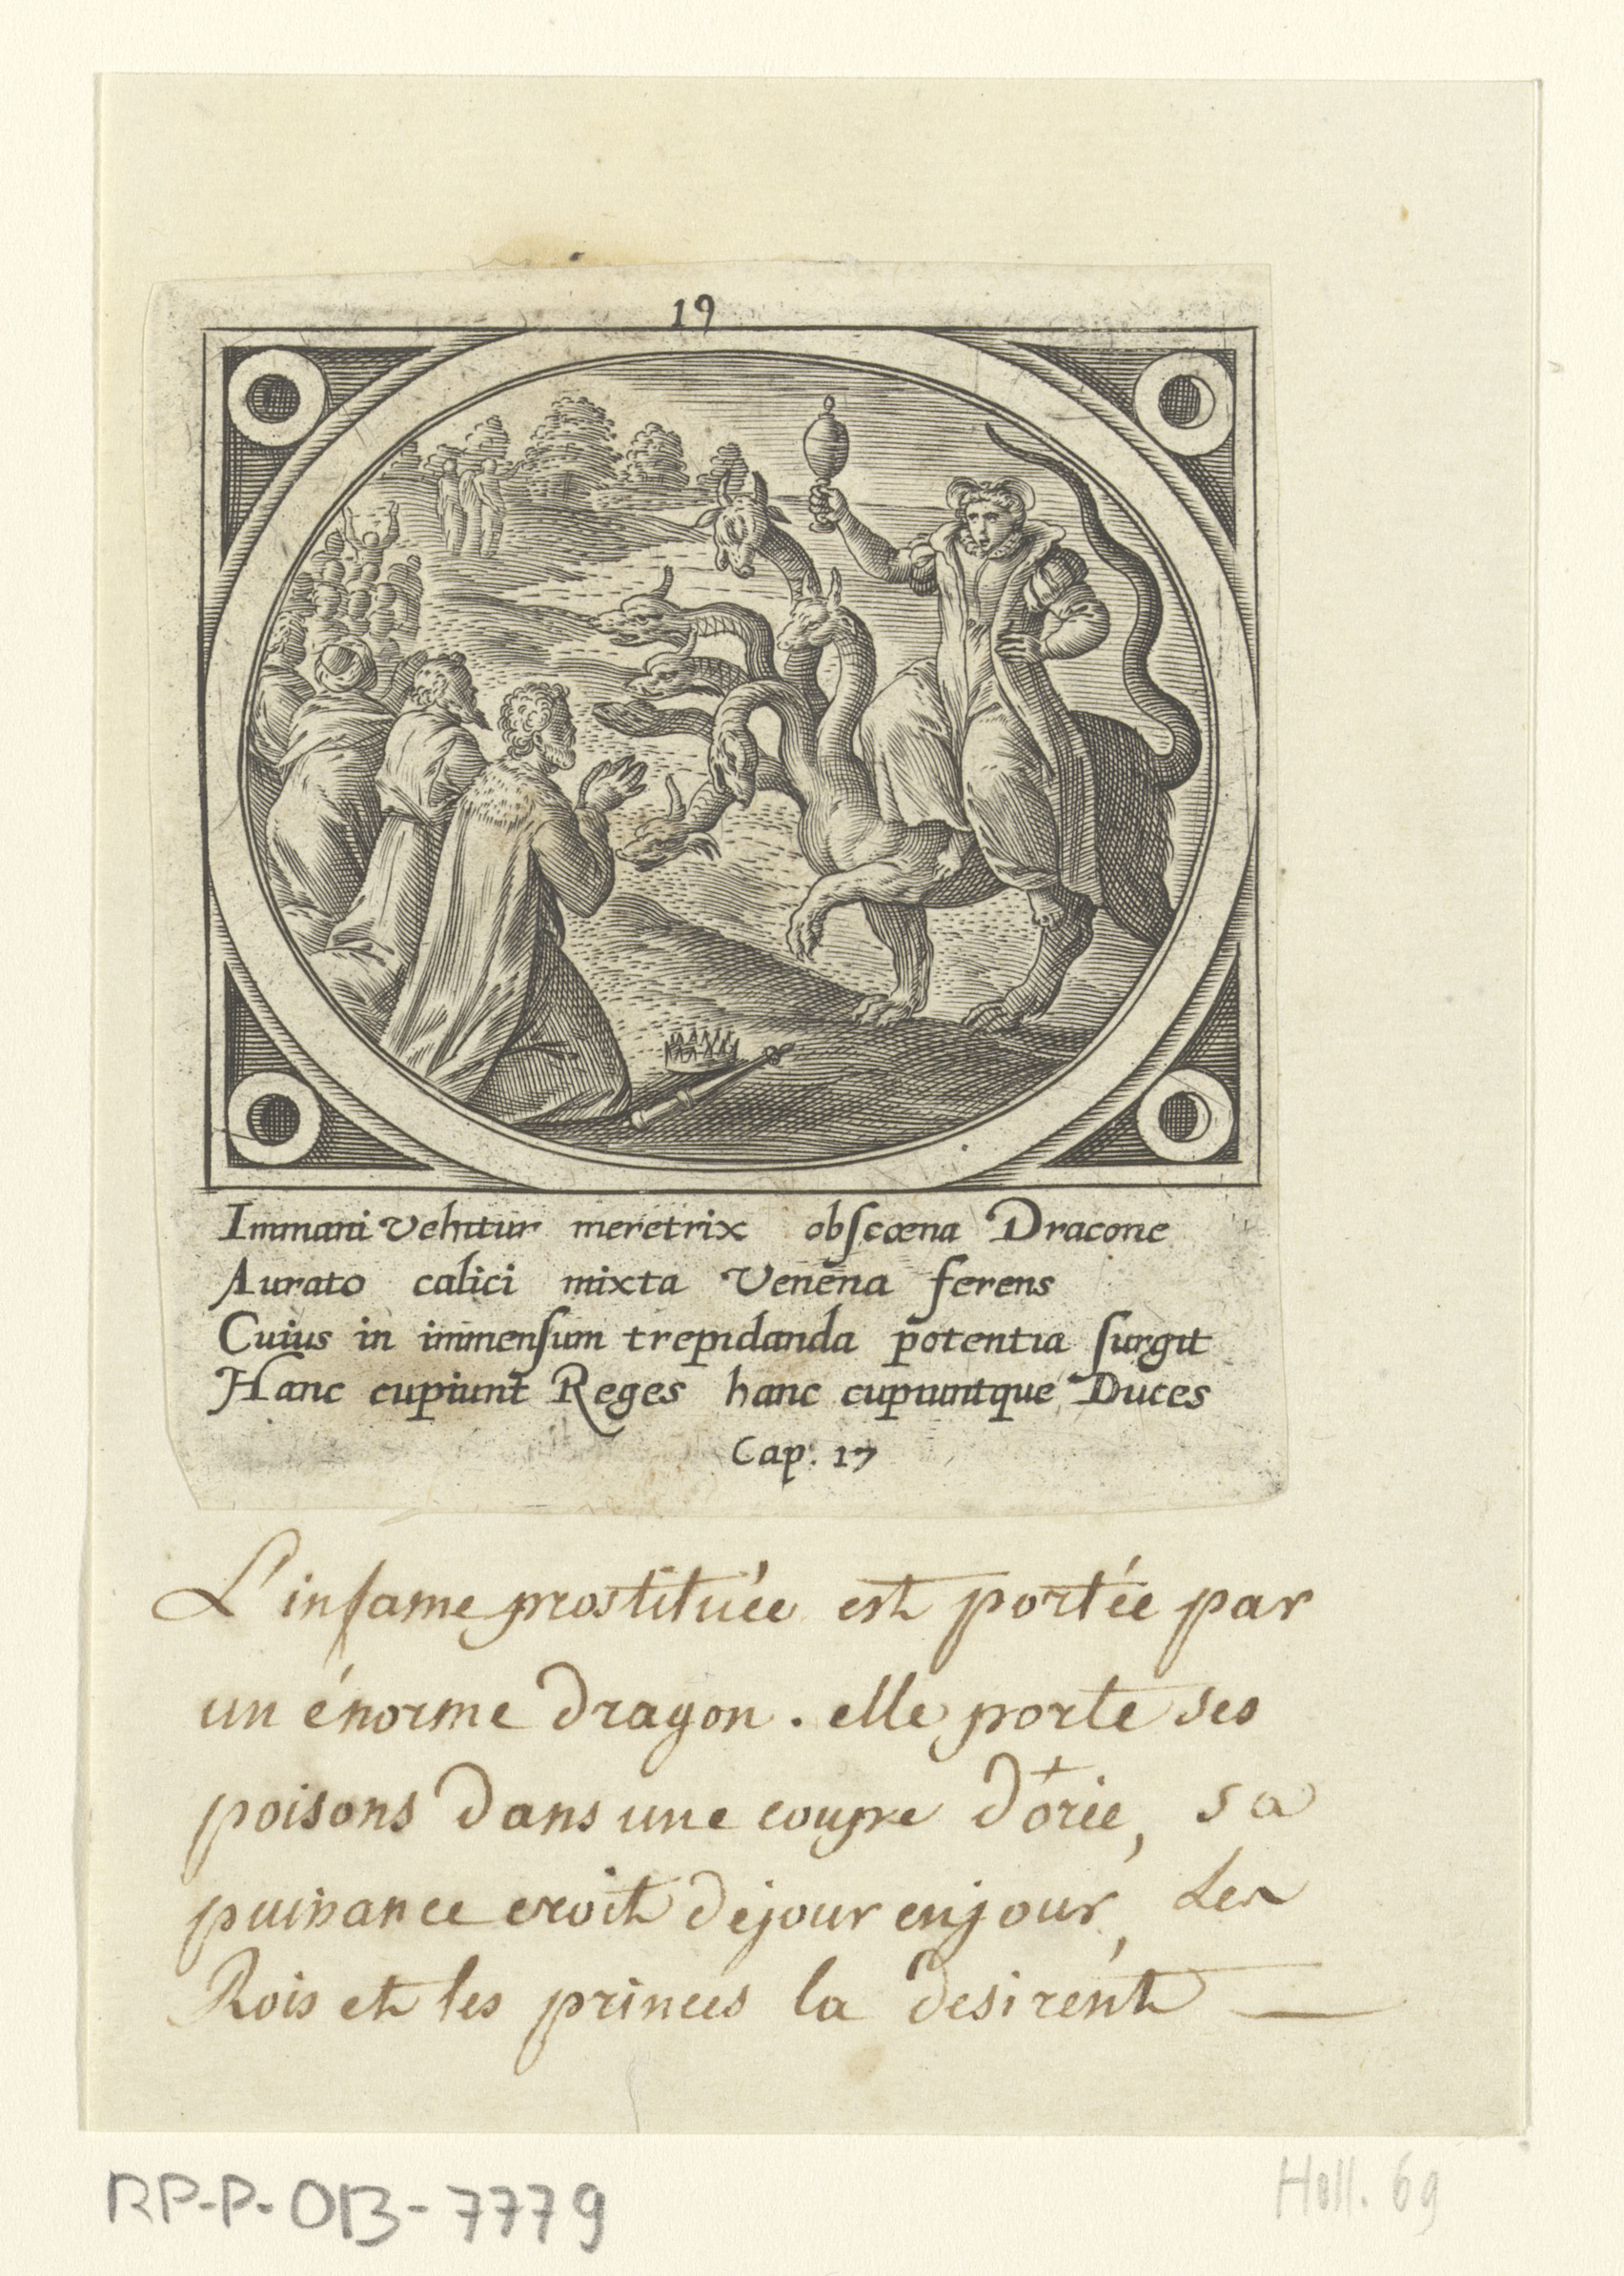 19
Immani vehitur meretrix obſcœna Dracone
Aurato calici mixta Venena ferens
Cuius in immenſum trepidanda potentia ſurgit
Hanc cupiunt Reges hanc cupiuntque Duces
Cap. 17
L'infame prostituée est portée par
un énorme dragon. elle porte ses
poisons dans une coupe d'orée, sa
puissance croit de jour en jour, Les
Rois et les princes la desirent —
RP-P-OB-7779
Holl. 69